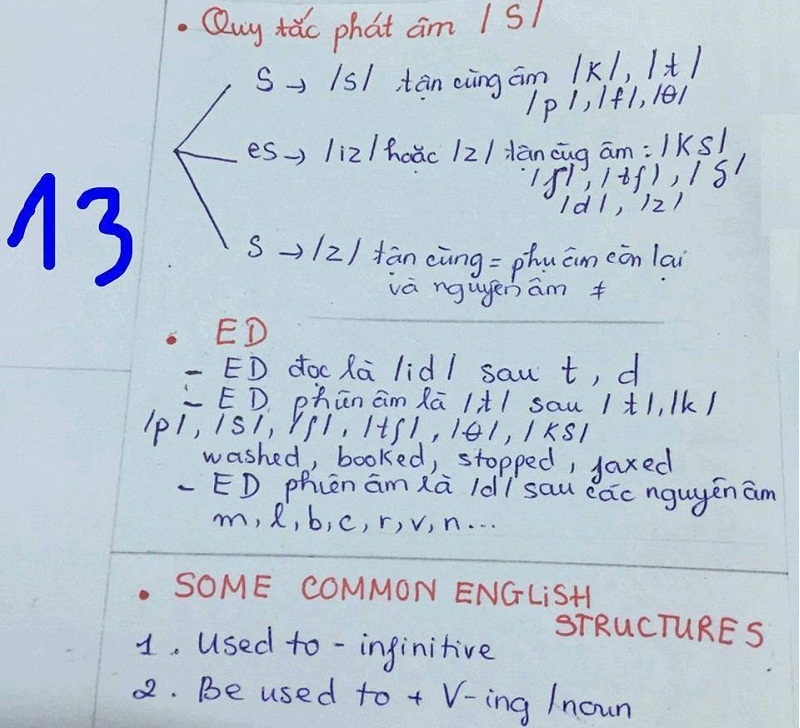 • Quy tắc phát âm /S/
S → /s/ tận cùng âm /k/, /t/
/p/, /f/, /θ/
es → /iz/ hoặc /z/ tân cùg âm : /KS/,
/ʃ/, /tʃ/, /S/
/d/, /z/
13
S → /z/ tân cùng = phụ âm còn lại
và nguyên âm ≠
• ED
- ED đọc là /id/ sau t, d
- ED phiên âm là /t/ sau /t/, /k/
/p/, /S/, /ʃ/, /tʃ/, /θ/, /KS/
washed, booked, stopped, faxed
- ED phiên âm là /d/ sau các nguyên âm
m, l, b, c, r, v, n...
• SOME COMMON ENGLiSH
STRUCTURES
1. Used to - infinitive
2. Be used to + V-ing /noun